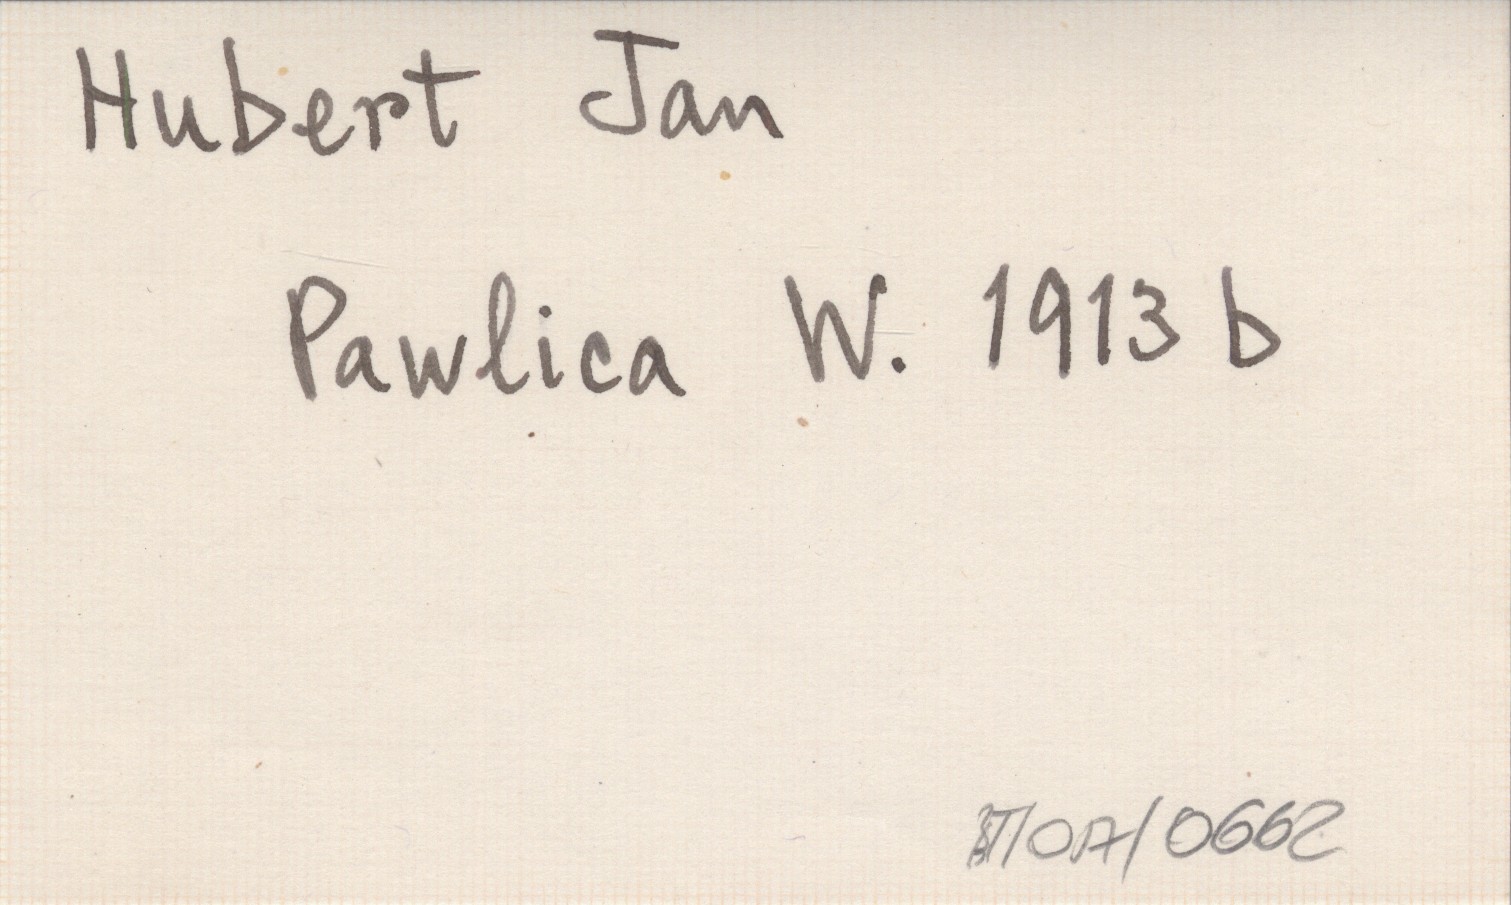 Hubert Jan
Pawlica W. 1913 b
/OA/0662